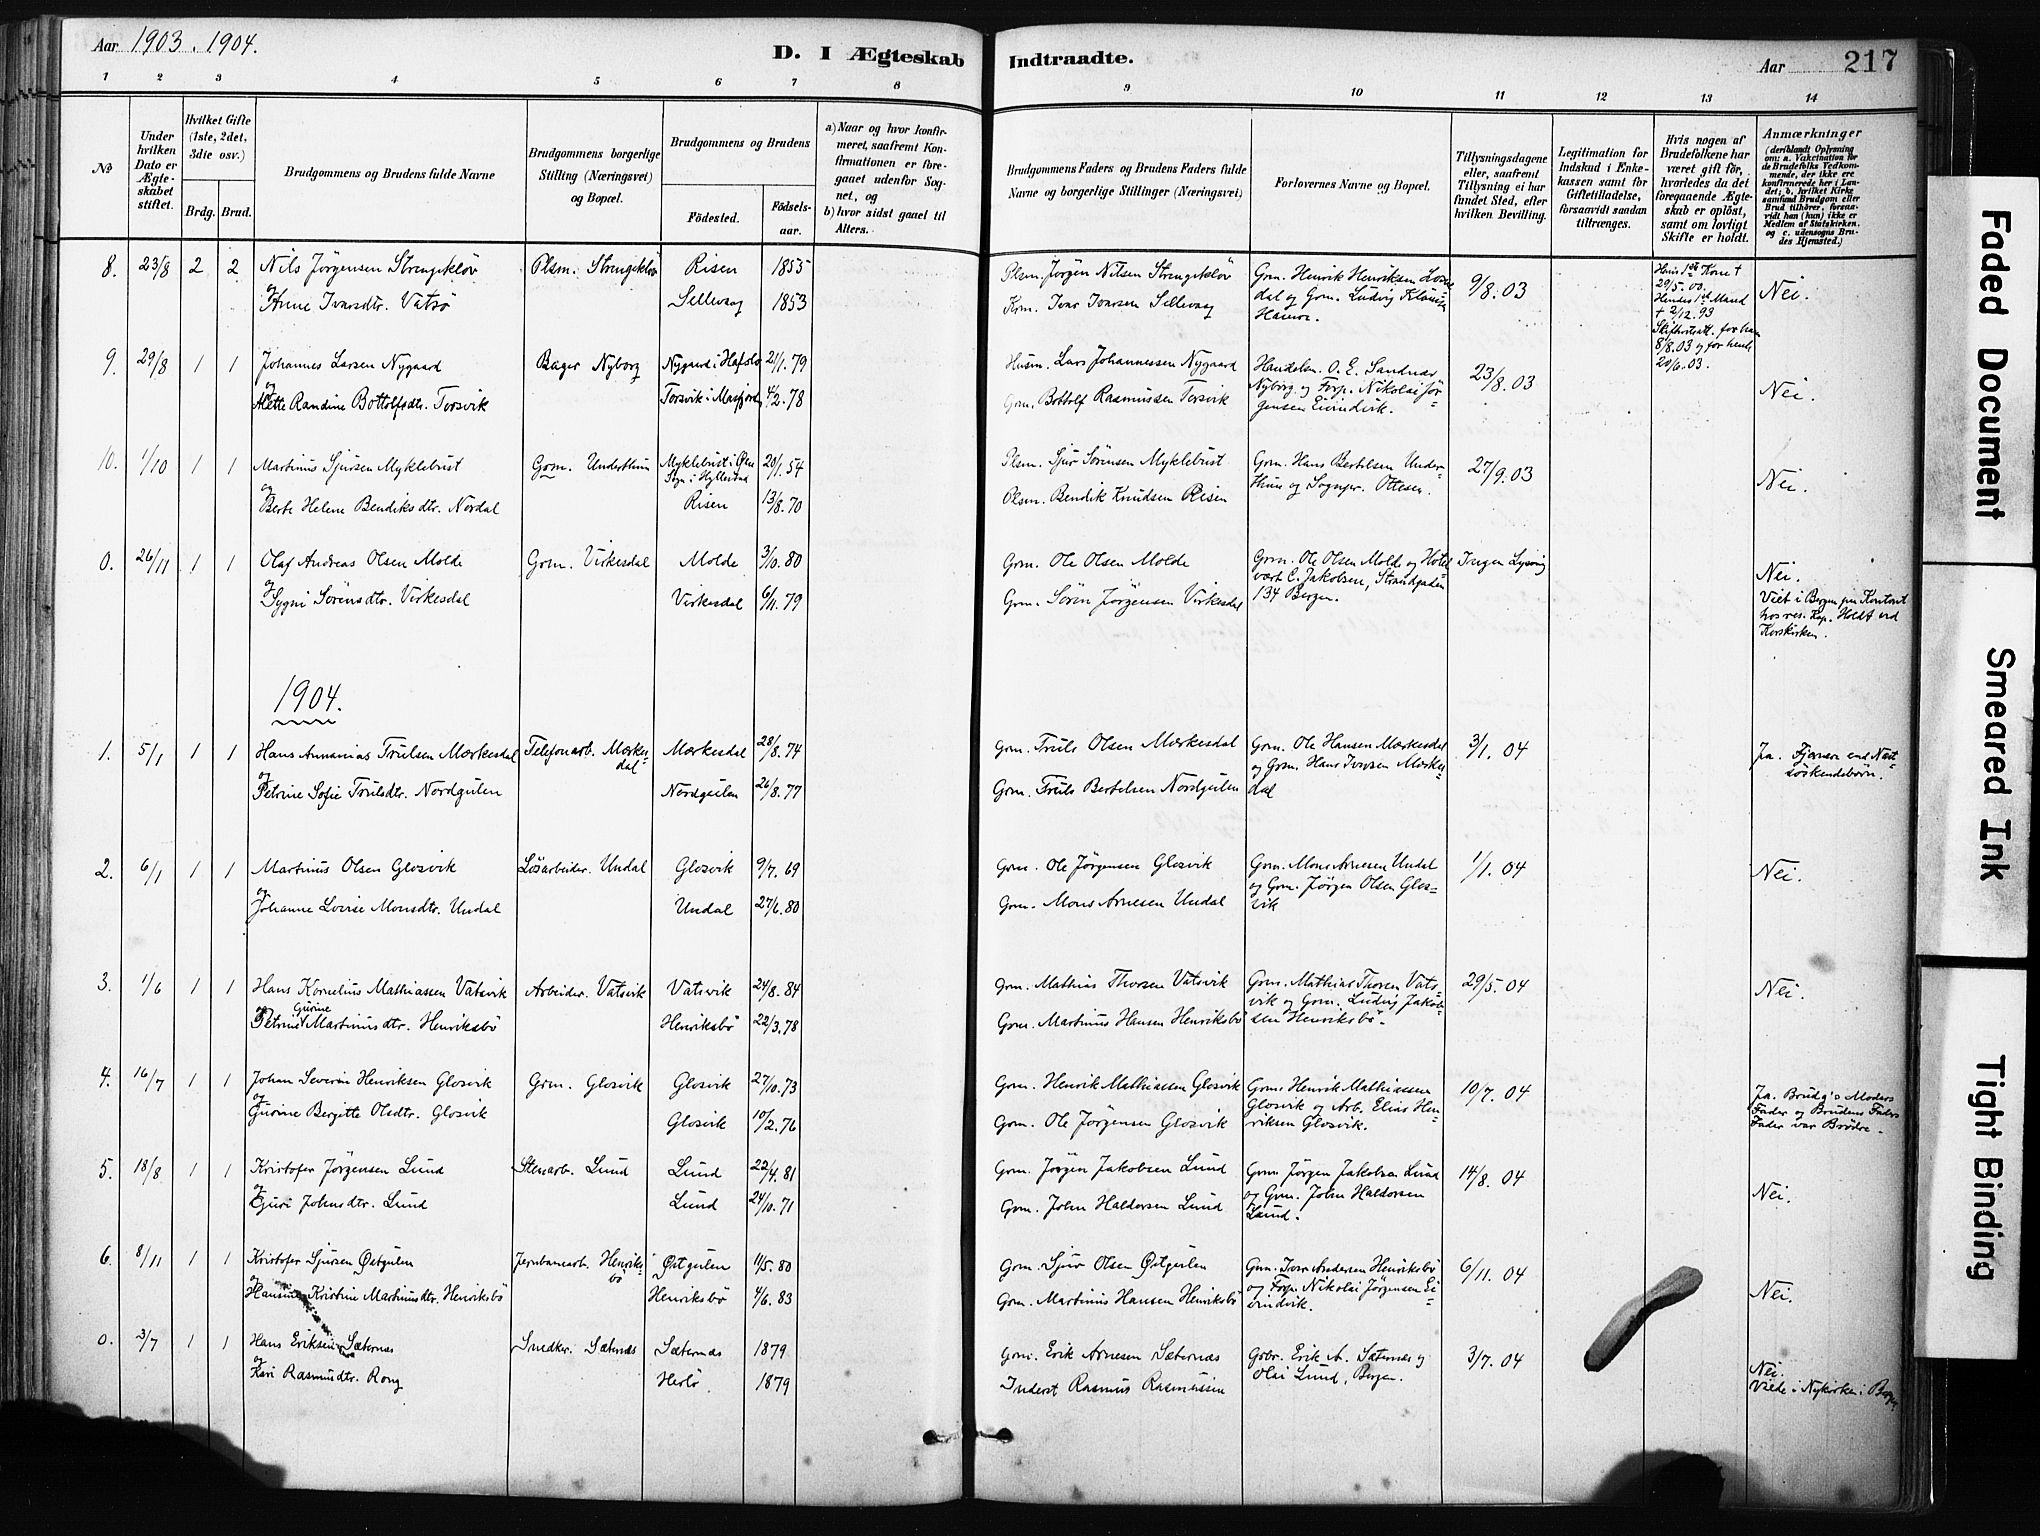 Aar 1903. 1904.
D. I Ægteskab Indtraadte.
Aar 217
1 2 3 4 5 6 7 8 9 10 11 12 13 14
№
Under hvilken Dato er Ægteskabet stiftet.
Hvilket Gifte (1ste, 2det, 3die osv.)
Brdg. Brud.
Brudgommens og Brudens fulde Navne
Brudgommens borgerlige Stilling (Næringsvei) og Bopæl.
Brudgommens og Brudens
Fødested. Fødselsaar.
a) Naar og hvor konfirmeret, saafremt Konfirmationen er foregaaet udenfor Sognet, og
b) hvor sidst gaaet til Alters.
Brudgommens Faders og Brudens Faders fulde Navne og borgerlige Stillinger (Næringsvei)
Forlovernes Navne og Bopæl.
Tillysningsdagene eller, saafremt Tillysning ei har fundet Sted, efter hvilken Bevilling.
Legitimation for Indskud i Enkekassen samt for Giftetilladelse, forsaavidt saadan tiltrænges.
Hvis nogen af Brudefolkene har været gift før, hvorledes da det foregaaende Ægteskab er opløst, samt om lovligt Skifte er holdt.
Anmærkninger (deriblandt Oplysning om: a. Vakcination for de Brudefolks Vedkommende, der ikke ere konfirmerede her i Landet; b. hvilket Kirkesamfund Brudgom eller Brud tilhører, forsaavidt han (hun) ikke er Medlem af Statskirken, og c. udensogns Brudes Hjemsted.)
8. 23/8 2 2 Nils Jörgensen Strengeklöv Plsm. Strengeklöv Risen 1855 Plsm. Jörgen Nilsen Strengeklöv Grm. Henrik Henriksen 9/8.03 Hans 1ste Kone † 29/5.00. Nei.
og Anne Ivarsdtr. Vatsö Sellevaag 1853 Krm. Ivar Ivarsen Sellevaag dal og Grm. Ludvig Hendes 1ste Mand † 2/12.93
8/8.03 og for hende 20/6.03.
9. 29/8 1 1 Johannes Larsen Nygaard Bager Nyborg Nygaard i Hafslo 21/1.79 Husm. Lars Johannessen Nygaard Handelsm. O. E. Sandnæs 23/8.03
og Mette Randine Bottolfsdtr. Torsvik Torsvik i Masfjorden 4/2.78 Grm. Bottolf Rasmussen Torsvik Nyborg og Forp. Nikolai Jörgensen Eivindvik. Nei.
10. 1/10 1 1 Martinus Sjursen Myklebust Grm. Underthun Myklebust i Öns Sogn i Hyllestad 20/1.54 Plsm. Sjur Sörensen Myklebust Grm. Hans Bertelsen Underthun og Sognepr. Ottesen. 27/9.03 Nei.
og Berte Helene Bendiksdtr. Nordal Risen 13/8.70 Plsm. Bendik Knudsen Risen
0. 26/11 1 1 Olaf Andreas Olsen Molde Grm. Virkesdal Molde 3/10.80 Grm. Ole Olsen Molde Grm. Ole Olsen Mold og Hotelvært C. Jakobsen, Strandgaden 134 Bergen. Ingen Lysning Nei.
og Sygni Sörensdtr. Virkesdal Virkesdal 6/11.79 Grm. Sören Jörgensen Virkesdal Viet i Bergen paa Kontoret hos res. Kap. Holdt ved Korskirken.
1904.
1. 5/1 1 1 Hans Annanias Trulsen Mærkesdal Telefonarb. Mærkesdal Mærkesdal 28/8.74 Grm. Truls Olsen Mærkesdal Grm. Ole Hansen Mærkesdal og Grm. Hans Ivarsen Mærkesdal 3/1.04 Ja. Fjernere end Næstsöskendebörn.
og Petrine Sofie Trulsdtr. Nordgulen Nordgulen 26/8.77 Grm. Truls Bertelsen Nordgulen
2. 6/1 1 1 Martinus Olsen Glosvik Lösarbeider. Undal Glosvik 9/7.69 Grm. Ole Jörgensen Glosvik Grm. Mons Arnesen Undal og Grm. Jörgen Olsen Glosvik 1/1.04 Nei.
og Johanne Lovise Monsdtr. Undal Undal 27/6.80 Grm. Mons Arnesen Undal
3. 1/6 1 1 Hans Kornelius Mathiassen Vatsvik Arbeider. Vatsvik Vatsvik 24/8.84 Grm. Mathias Thorsen Vatsvik Grm. Mathias Thorsen Vatsvik og Grm. Ludvig Jakobsen Henriksbö. 29/5.04 Nei.
og Petrine Gurine Martinusdtr. Henriksbö Henriksbö 22/3.78 Grm. Martinus Hansen Henriksbö
4. 16/7 1 1 Johan Severin Henriksen Glosvik Grm. Glosvik Glosvik 27/10.73 Grm. Henrik Mathiassen Glosvik Grm. Henrik Mathiassen Glosvik og Arb. Elias Henriksen Glosvik. 10/7.04 Ja. Brudg's Moders Fader og Brudens Faders Fader var Brödre.
og Gurine Bergitte Olsdtr. Glosvik Glosvik 10/2.76 Grm. Ole Jörgensen Glosvik
5. 18/8 1 1 Kristofer Jörgensen Lund Stenarb. Lund Lund 22/4.81 Grm. Jörgen Jakobsen Lund Grm. Jörgen Jakobsen Lund og Grm. John Haldorsen Lund. 14/8.04 Nei.
og Guri Johnsdtr. Lund Lund 24/10.71 Grm. John Haldorsen Lund
6. 8/11 1 1 Kristofer Sjursen Östgulen Jernbanearb. Henriksbö Östgulen 11/5.80 Grm. Sjur Olsen Östgulen Grm. Ivar Andersen Henriksbö og Forp. Nikolai Jörgensen Eivindvik. 6/11.04 Nei.
og Hansine Kristine Martinusdtr. Henriksbö Henriksbö 4/6.83 Grm. Martinus Hansen Henriksbö
0. 3/7 1 1 Hans Eriksen Sæternæs Snedker. Sæternæs Sæternæs 1879 Grm. Erik Arnesen Sæternæs Grbr. Erik A. Sæternæs og Olai Lund, Bergen. 3/7.04 Nei.
og Kari Rasmusdtr. Rong Herlö. 1879 Inderst Rasmus Rasmussen Viede i Nykirken i Bergen
Faded Document
Smeared Ink
Tight Binding